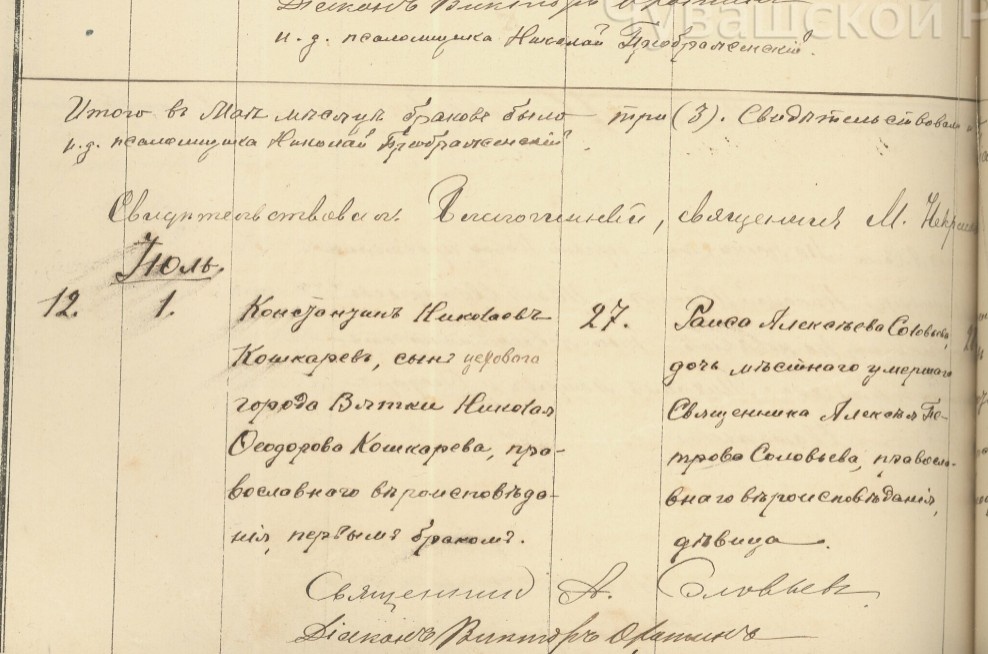 Діаконъ Викторъ
и. д. псаломщика Николай Преображенскій.
Чувашской Р
Итого въ Маѣ мѣсяцѣ браковъ было три (3). Свидѣтельствовали
и. д. псаломщика Николай Преображенскій.
Свидѣтельствовалъ Благочинный, священникъ М.
Іюль.
12. 1. Константинъ Николаевъ 27. Раиса Алексѣева Соловьева,
Кошкаревъ, сынъ цехового дочь мѣстнаго умершаго
города Вятки Николая Священника Алексѣя Пе-
Ѳеодорова Кошкарева, пра- трова Соловьева, правосла-
вославнаго вѣроисповѣда- внаго вѣроисповѣданія,
нія, первымъ бракомъ. дѣвица.
Священникъ А. Соловьевъ
Діаконъ Викторъ